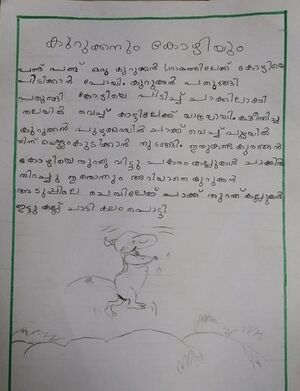 കുറുക്കനും കോഴിയും
പണ്ട് പണ്ട് ഒരു കുറുക്കൻ ഗ്രാമത്തിലേക്ക് കോഴിയെ
പിടിക്കാൻ പോയി. കുറുക്കൻ പതുങ്ങി
പതുങ്ങി കോഴിയെ പിടിച്ച് ചാക്കിലാക്കി
തലയിൽ വെച്ച് കാട്ടിലേക്ക് യാത്രയായി. ക്ഷീണിച്ച
കുറുക്കൻ പുഴക്കരയിൽ ചാക്ക് വെച്ച് പുഴയിൽ
നിന്ന് വെള്ളംകുടിക്കാൻ തുടങ്ങി. ഇതുകണ്ട കുരങ്ങൻ
കോഴിയെ തുറന്നു വിട്ടു പകരം കല്ലുകൾ ചാക്കിൽ
നിറച്ചു ഇതൊന്നും അറിയാതെ കുറുക്കൻ
അടുപ്പിലെ ചെമ്പിലേക്ക് ചാക്ക് തുറന്ന് കല്ലുകൾ
ഇട്ടു കല്ല് ചാടി കലം പൊട്ടി